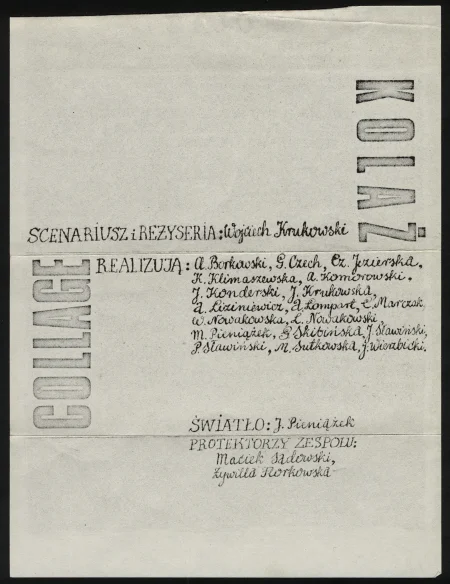 KOLAŻ
SCENARIUSZ i REŻYSERIA: Wojciech Krukowski
COLLAGE
REALIZUJĄ: A. Borkowski, G. Czech, Cz. Jezierska,
K. Klimaszewska, A. Komorowski.
J. Konderski, J. Krukowska,
A. Liziniewicz, A. Lompart, L. Marczak
W. Nowakowska, Z. Nowakowski
M. Pieniążek, G. Skibińska, J. Sławiński,
P. Sławiński, M. Sutkowska, J. Wierzbicki.
ŚWIATŁO: J. Pieniążek
PROTEKTORZY ZESPOŁU:
Maciek Sądowski,
Żywilla Norkowska